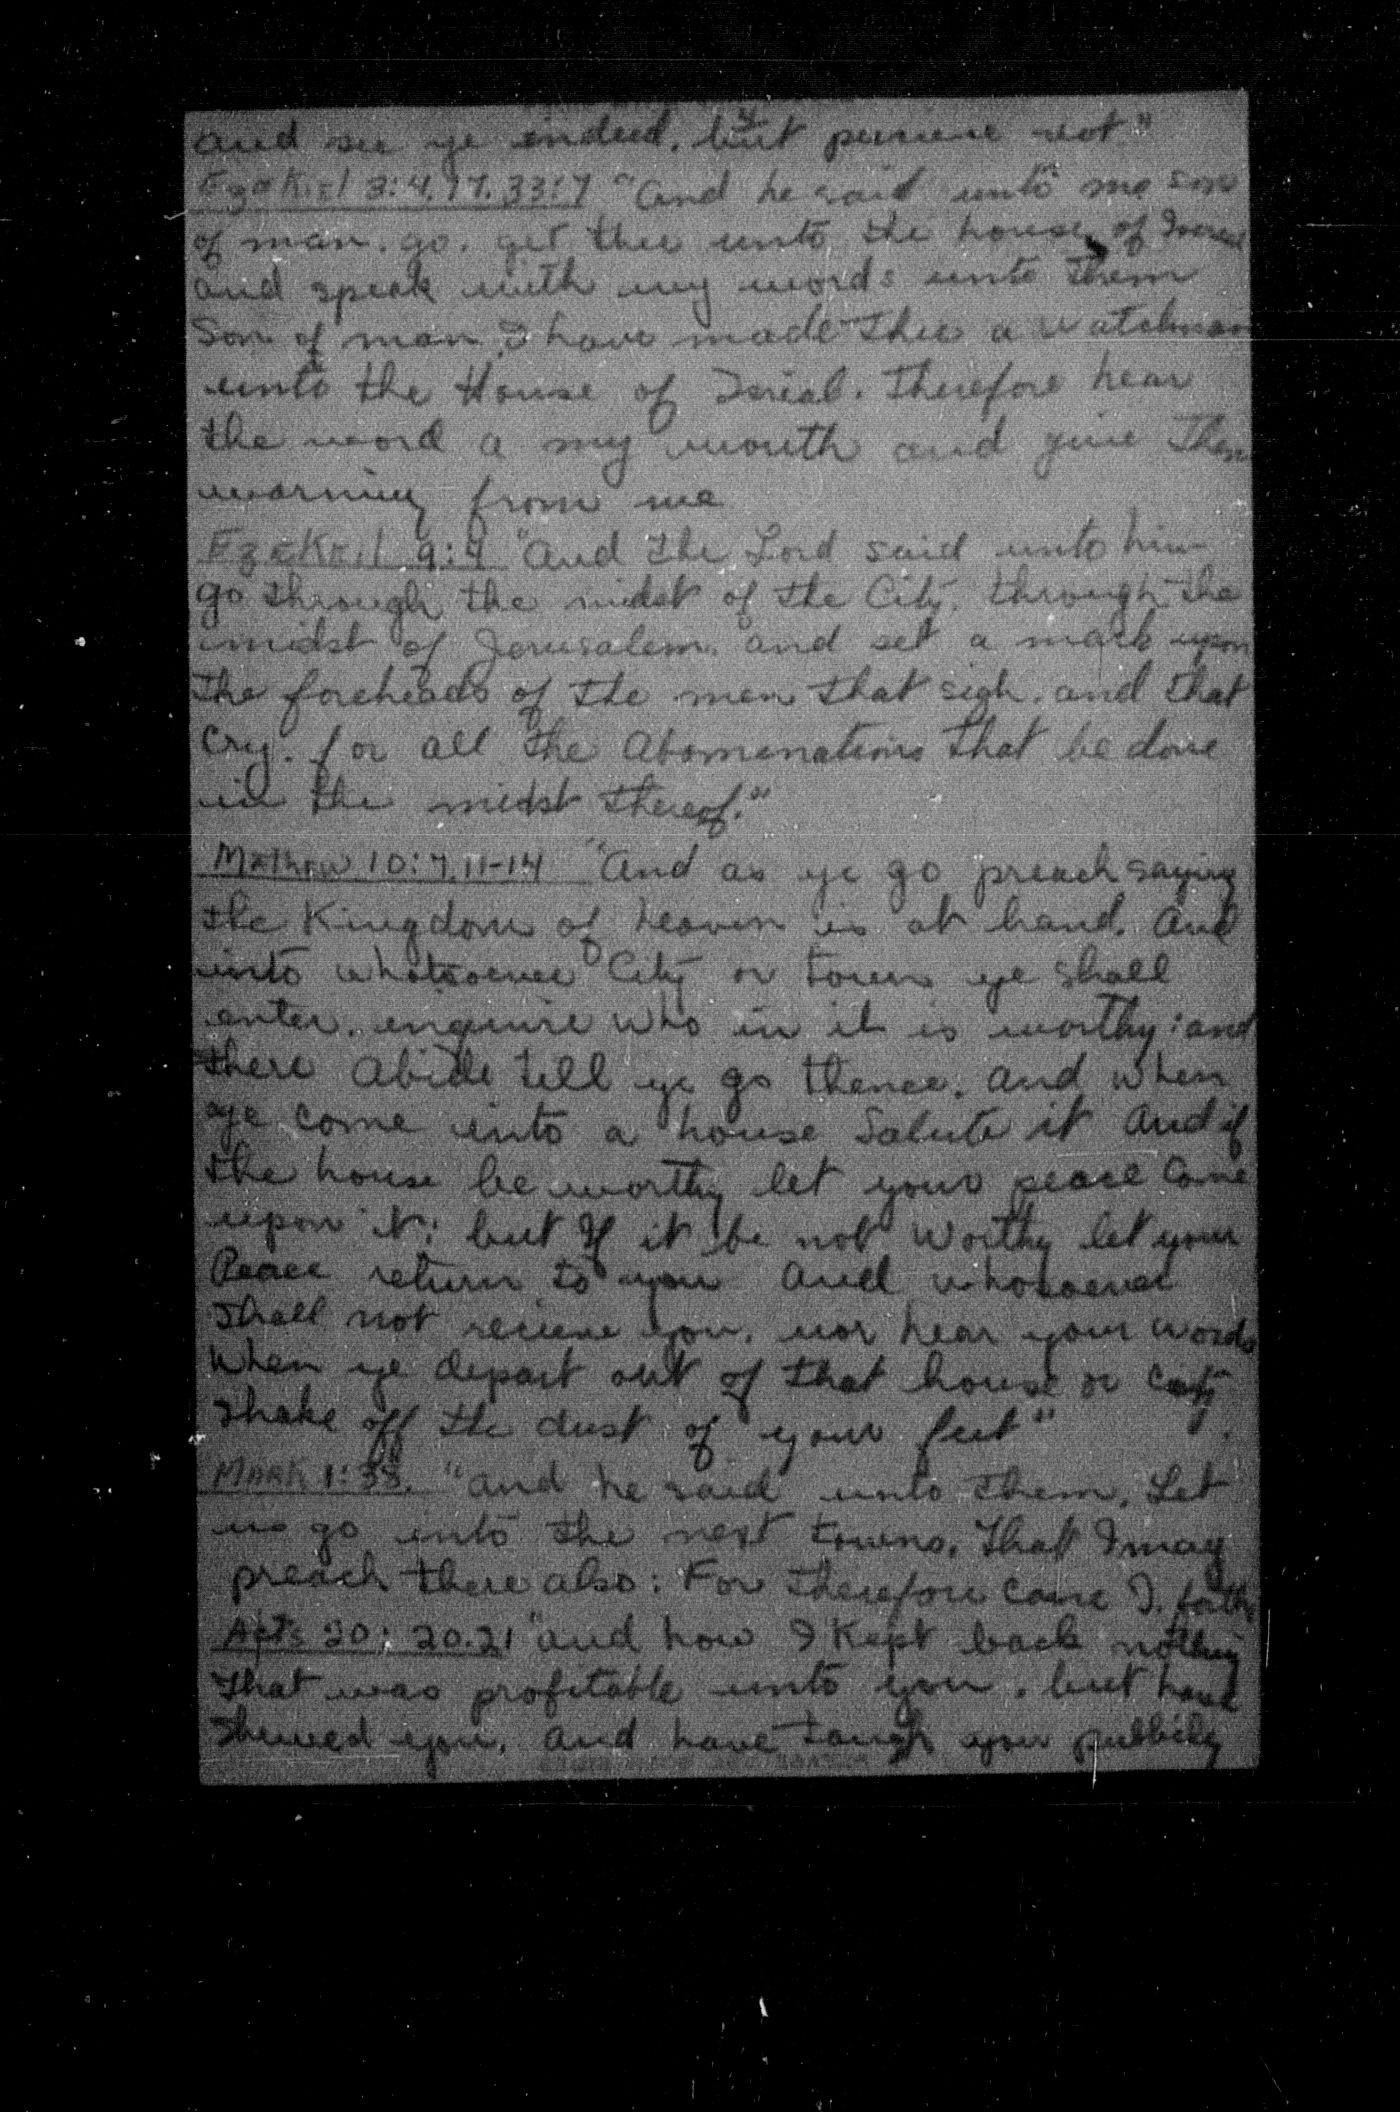 and see ye indeed, but percieve not."
Ezekiel 3:4,17. 33:7 "and he said unto me son
of man, go, get thee unto the house of Isreal
and speak with my words unto them
Son of man I have made thee a watchman
unto the House of Isreal. Therefore hear
the word a my mouth and give them
warning from me
Ezekeil 9:4 "and the Lord said unto him
go through the midst of the City, through the
midst of Jerusalem, and set a mark upon
the foreheads of the men that sigh, and that
cry, for all the Abominations that be done
in the midst thereof."
Mathew 10:7,11-14 "And as ye go preach saying
the Kingdom of heaven is at hand. And
into whatsoever City or town ye shall
enter, enquire who in it is worthy: and
there Abide till ye go thence. and when
ye come into a house Salute it and if
the house be worthy let your peace come
upon it: but If it be not worthy let your
Peace return to you and whosoever
shall not recieve you, nor hear your words
when ye depart out of that house or city
shake off the dust of your feet"
Mark 1:38. "and he said unto them, Let
us go into the next towns, that I may
preach there also: For therefore came I forth
Acts 20:20.21 "and how I Kept back nothing
that was profitable unto you, but have
shewed you, and have taugh you publicly